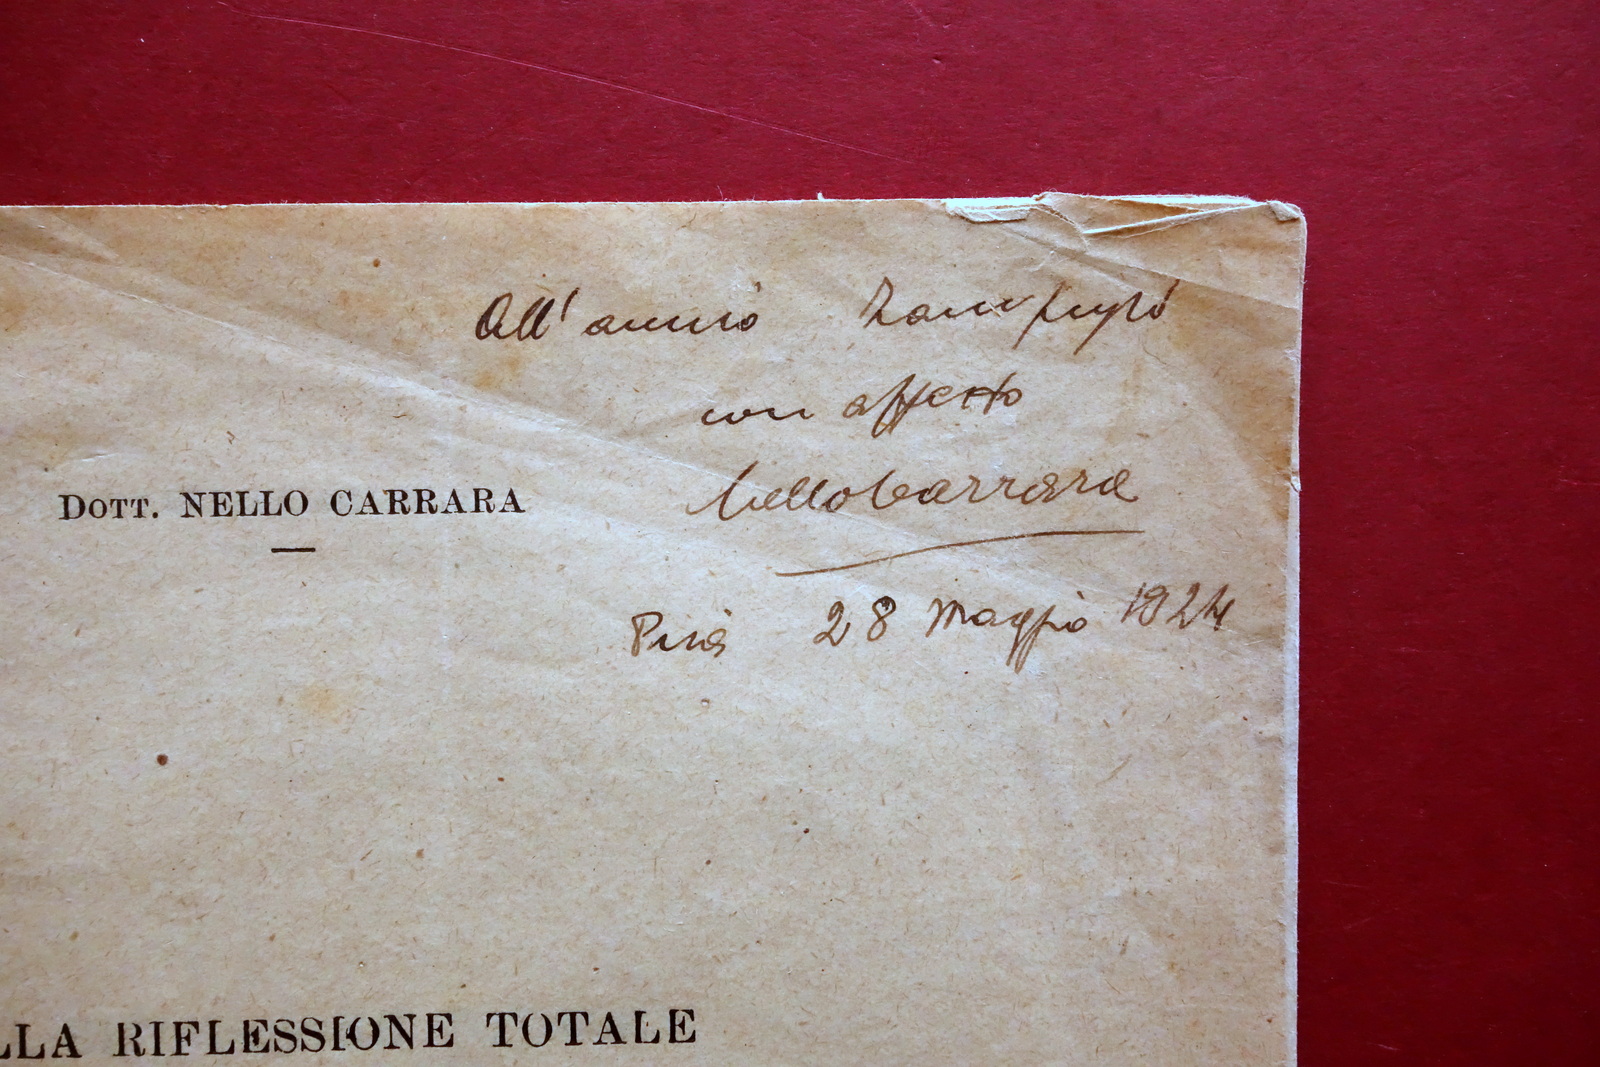 All'amico
con affetto
Nello Carrara
Dott. NELLO CARRARA
Pisa 28 Maggio 1924
LLA RIFLESSIONE TOTALE